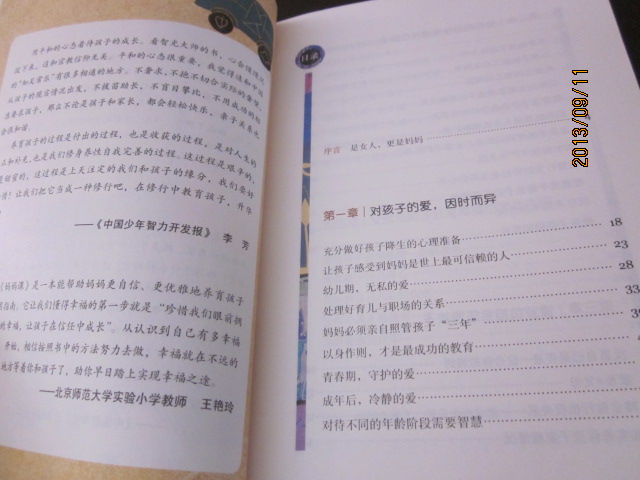 用平和的心态看待孩子的成长。看智光大师的书，心会慢慢沉
淀下来，这和宗教信仰无关。平和的心态很重要，我觉得这和中国
的“知足常乐”有很多相通的地方。不奢求，不把不切合实际的奢望，
从孩子的现实情况出发，不拔苗助长，不盲目攀比，不用成功的标
准要求孩子，那么不论是孩子和家长，都会轻松快乐，亲子关系也
会很和谐。
养育孩子的过程是付出的过程，也是收获的过程，是对人生的
点和补充，也是我们修身养性自我完善的过程。这过程是艰辛的，
是甜蜜的。这过程是上天注定的我们和孩子的缘分，我们要好
惜！让我们把它当成一种修行吧，在修行中教育孩子，升华
——《中国少年智力开发报》 李 芳
《妈妈课》是一本能帮助妈妈更自信、更优雅地养育孩子
用指南。它让我们懂得幸福的第一步就是“珍惜我们眼前拥
的幸福，让孩子在信任中成长”。从认识到自己有多幸福
开始，相信按照书中的方法努力去做，幸福就在不远的
地方等着你和孩子了，助你早日踏上实现幸福之途。
——北京师范大学实验小学教师 王艳玲
目录
序言 是女人，更是妈妈
第一章 | 对孩子的爱，因时而异
充分做好孩子降生的心理准备 18
让孩子感受到妈妈是世上最可信赖的人 23
幼儿期，无私的爱 28
处理好育儿与职场的关系 33
妈妈必须亲自照管孩子“三年”
以身作则，才是最成功的教育
青春期，守护的爱
成年后，冷静的爱
对待不同的年龄阶段需要智慧
2013/09/11